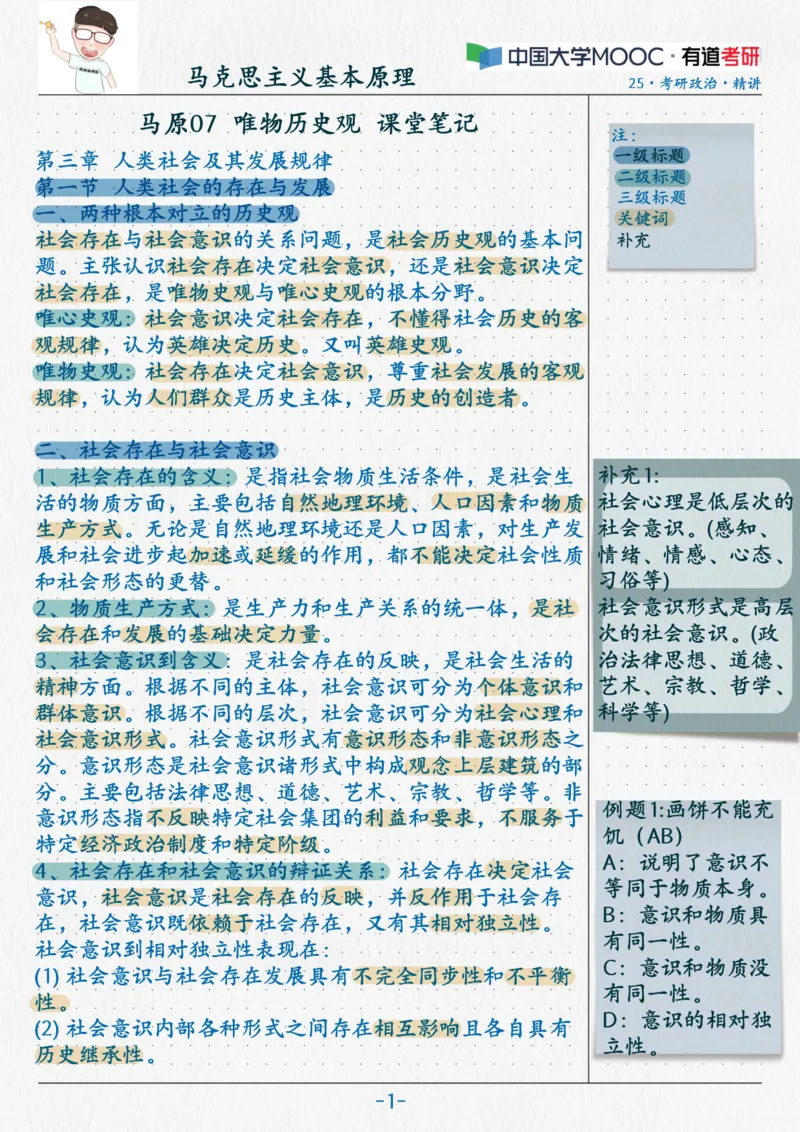 马克思主义基本原理
中国大学MOOC·有道考研
25·考研政治·精讲
马原07 唯物历史观 课堂笔记
第三章 人类社会及其发展规律
第一节 人类社会的存在与发展
一、两种根本对立的历史观
社会存在与社会意识的关系问题，是社会历史观的基本问
题。主张认识社会存在决定社会意识，还是社会意识决定
社会存在，是唯物史观与唯心史观的根本分野。
唯心史观：社会意识决定社会存在，不懂得社会历史的客
观规律，认为英雄决定历史。又叫英雄史观。
唯物史观：社会存在决定社会意识，尊重社会发展的客观
规律，认为人们群众是历史主体，是历史的创造者。
二、社会存在与社会意识
1、社会存在的含义：是指社会物质生活条件，是社会生
活的物质方面，主要包括自然地理环境、人口因素和物质
生产方式。无论是自然地理环境还是人口因素，对生产发
展和社会进步起加速或延缓的作用，都不能决定社会性质
和社会形态的更替。
2、物质生产方式：是生产力和生产关系的统一体，是社
会存在和发展的基础决定力量。
3、社会意识到含义：是社会存在的反映，是社会生活的
精神方面。根据不同的主体，社会意识可分为个体意识和
群体意识。根据不同的层次，社会意识可分为社会心理和
社会意识形式。社会意识形式有意识形态和非意识形态之
分。意识形态是社会意识诸形式中构成观念上层建筑的部
分。主要包括法律思想、道德、艺术、宗教、哲学等。非
意识形态指不反映特定社会集团的利益和要求，不服务于
特定经济政治制度和特定阶级。
4、社会存在和社会意识的辩证关系：社会存在决定社会
意识，社会意识是社会存在的反映，并反作用于社会存
在，社会意识既依赖于社会存在，又有其相对独立性。
社会意识到相对独立性表现在：
(1) 社会意识与社会存在发展具有不完全同步性和不平衡
性。
(2) 社会意识内部各种形式之间存在相互影响且各自具有
历史继承性。
注：
一级标题
二级标题
三级标题
关键词
补充
补充1:
社会心理是低层次的
社会意识。(感知、
情绪、情感、心态、
习俗等)
社会意识形式是高层
次的社会意识。(政
治法律思想、道德、
艺术、宗教、哲学、
科学等)
例题1:画饼不能充
饥（AB）
A：说明了意识不
等同于物质本身。
B：意识和物质具
有同一性。
C：意识和物质没
有同一性。
D：意识的相对独
立性。
-1-